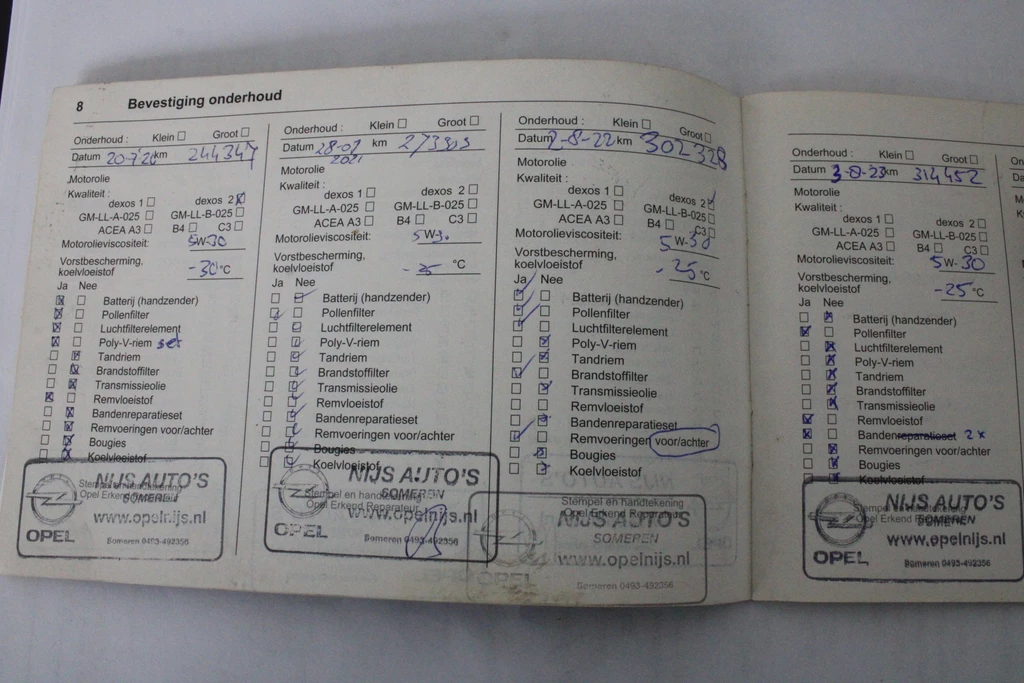 8 Bevestiging onderhoud
Onderhoud : Klein Groot
Datum 20-7-20 km 244347
Motorolie
Kwaliteit :
dexos 1 dexos 2
GM-LL-A-025 GM-LL-B-025
ACEA A3 B4 C3
Motorolieviscositeit: 5W-30
Vorstbescherming,
koelvloeistof -30 °C
Ja Nee
Batterij (handzender)
Pollenfilter
Luchtfilterelement
Poly-V-riem set
Tandriem
Brandstoffilter
Transmissieolie
Remvloeistof
Bandenreparatieset
Remvoeringen voor/achter
Bougies
Koelvloeistof
Stempel en handtekening
Opel Erkend Reparateur
NIJS AUTO'S
SOMEREN
www.opelnijs.nl
OPEL
Someren 0493-492356
Onderhoud : Klein Groot
Datum 28-07 2021 km
Motorolie
Kwaliteit :
dexos 1 dexos 2
GM-LL-A-025 GM-LL-B-025
ACEA A3 B4 C3
Motorolieviscositeit: 5W-30
Vorstbescherming,
koelvloeistof -25 °C
Ja Nee
Batterij (handzender)
Pollenfilter
Luchtfilterelement
Poly-V-riem
Tandriem
Brandstoffilter
Transmissieolie
Remvloeistof
Bandenreparatieset
Remvoeringen voor/achter
Bougies
Koelvloeistof
Stempel en handtekening
Opel Erkend Reparateur
NIJS AUTO'S
SOMEREN
www.opelnijs.nl
OPEL
Someren 0493-492356
Onderhoud : Klein Groot
Datum 2-8-22 km 302328
Motorolie
Kwaliteit :
dexos 1 dexos 2
GM-LL-A-025 GM-LL-B-025
ACEA A3 B4 C3
Motorolieviscositeit: 5W-30
Vorstbescherming,
koelvloeistof -25 °C
Ja Nee
Batterij (handzender)
Pollenfilter
Luchtfilterelement
Poly-V-riem
Tandriem
Brandstoffilter
Transmissieolie
Remvloeistof
Bandenreparatieset
Remvoeringen voor/achter
Bougies
Koelvloeistof
Stempel en handtekening
Opel Erkend Reparateur
NIJS AUTO'S
SOMEREN
www.opelnijs.nl
OPEL
Someren 0493-492356
Onderhoud : Klein Groot
Datum 3-8-23 km 314452
Motorolie
Kwaliteit :
dexos 1 dexos 2
GM-LL-A-025 GM-LL-B-025
ACEA A3 B4 C3
Motorolieviscositeit: 5W-30
Vorstbescherming,
koelvloeistof -25 °C
Ja Nee
Batterij (handzender)
Pollenfilter
Luchtfilterelement
Poly-V-riem
Tandriem
Brandstoffilter
Transmissieolie
Remvloeistof
Bandenreparatieset 2x
Remvoeringen voor/achter
Bougies
Koelvloeistof
NIJS AUTO'S
SOMEREN
www.opelnijs.nl
OPEL
Someren 0493-492356